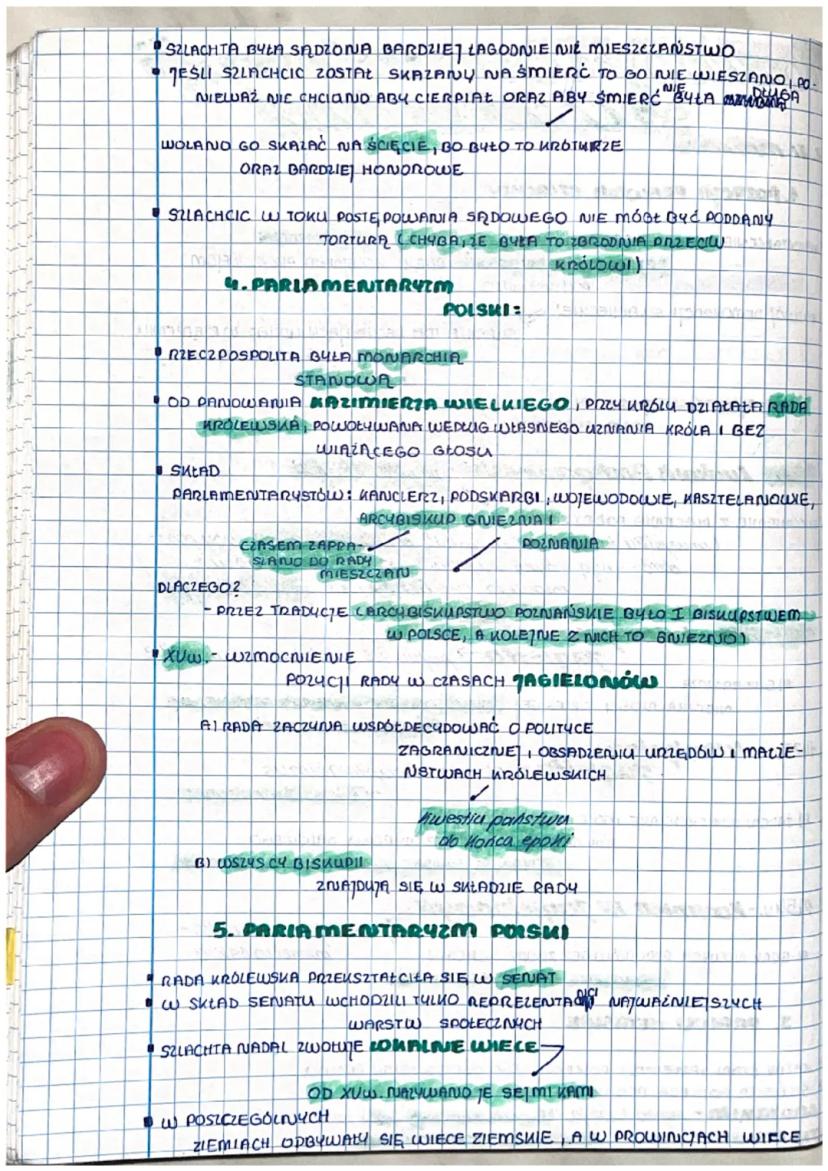 • SZLACHTA BYŁA SĄDZONA BARDZIEJ ŁAGODNIE NIŻ MIESZCZAŃSTWO
• JEŚLI SZLACHCIC ZOSTAŁ SKAZANY NA ŚMIERĆ TO GO NIE WIESZANO, PO-
NIEWAŻ NIE CHCIANO ABY CIERPIAŁ ORAZ ABY ŚMIERĆ NIE BYŁA DŁUGA
WOLANO GO SKAZAĆ NA ŚCIĘCIE, BO BYŁO TO KRÓTURZE
ORAZ BARDZIEJ HONOROWE
• SZLACHCIC W TOKU POSTĘPOWANIA SĄDOWEGO NIE MÓGŁ BYĆ PODDANY
TORTURĄ (CHYBA, ŻE BYŁA TO ZBRODNIA PRZECIW
KRÓLOWI)
4. PARLAMENTARYZM
POLSKI:
• RZECZPOSPOLITA BYŁA MONARCHIA
STANOWA
• OD PANOWANIA KAZIMIERZA WIELKIEGO, PRZY KRÓLU DZIAŁAŁA RADA
KRÓLEWSKA, POWOŁYWANA WEDŁUG WŁASNEGO UZNANIA KRÓLA I BEZ
WIĄŻĄCEGO GŁOSU
• SKŁAD
PARLAMENTARYSTÓW: KANCLERZ, PODSKARBI, WOJEWODOWIE, KASZTELANOWIE,
ARCYBISKUP GNIEZNA I
POZNANIA
CZASEM ZAPRA-
SZANO DO RADY
MIESZCZAN
DLACZEGO?
- PRZEZ TRADYCJE (ARCYBISKUPSTWO POZNAŃSKIE BYŁO I BISKUPSTWEM
W POLSCE, A KOLEJNE Z NICH TO GNIEZNO)
• XV w. - WZMOCNIENIE
POZYCJI RADY W CZASACH JAGIELONÓW
A) RADA ZACZYNA WSPÓŁDECYDOWAĆ O POLITYCE
ZAGRANICZNEJ, OBSADZENIU URZĘDÓW I MAŁŻE-
NSTWACH KRÓLEWSKICH
kwestia państwa
do końca epoki
B) WSZYSCY BISKUPII
ZNAJDUJĄ SIĘ W SKŁADZIE RADY
5. PARLAMENTARYZM POLSKI
• RADA KRÓLEWSKA PRZEKSZTAŁCIŁA SIĘ W SENAT
• W SKŁAD SENATU WCHODZILI TYLKO REPREZENTANCI NAJWAŻNIEJSZYCH
WARSTW SPOŁECZNYCH
• SZLACHTA NADAL ZWOŁUJE LOKALNE WIECE
OD XV w. NAZYWANO JE SEJMIKAMI
• W POSZCZEGÓLNYCH
ZIEMIACH ODBYWAŁY SIĘ WIECE ZIEMSKIE, A W PROWINCJACH WIECE